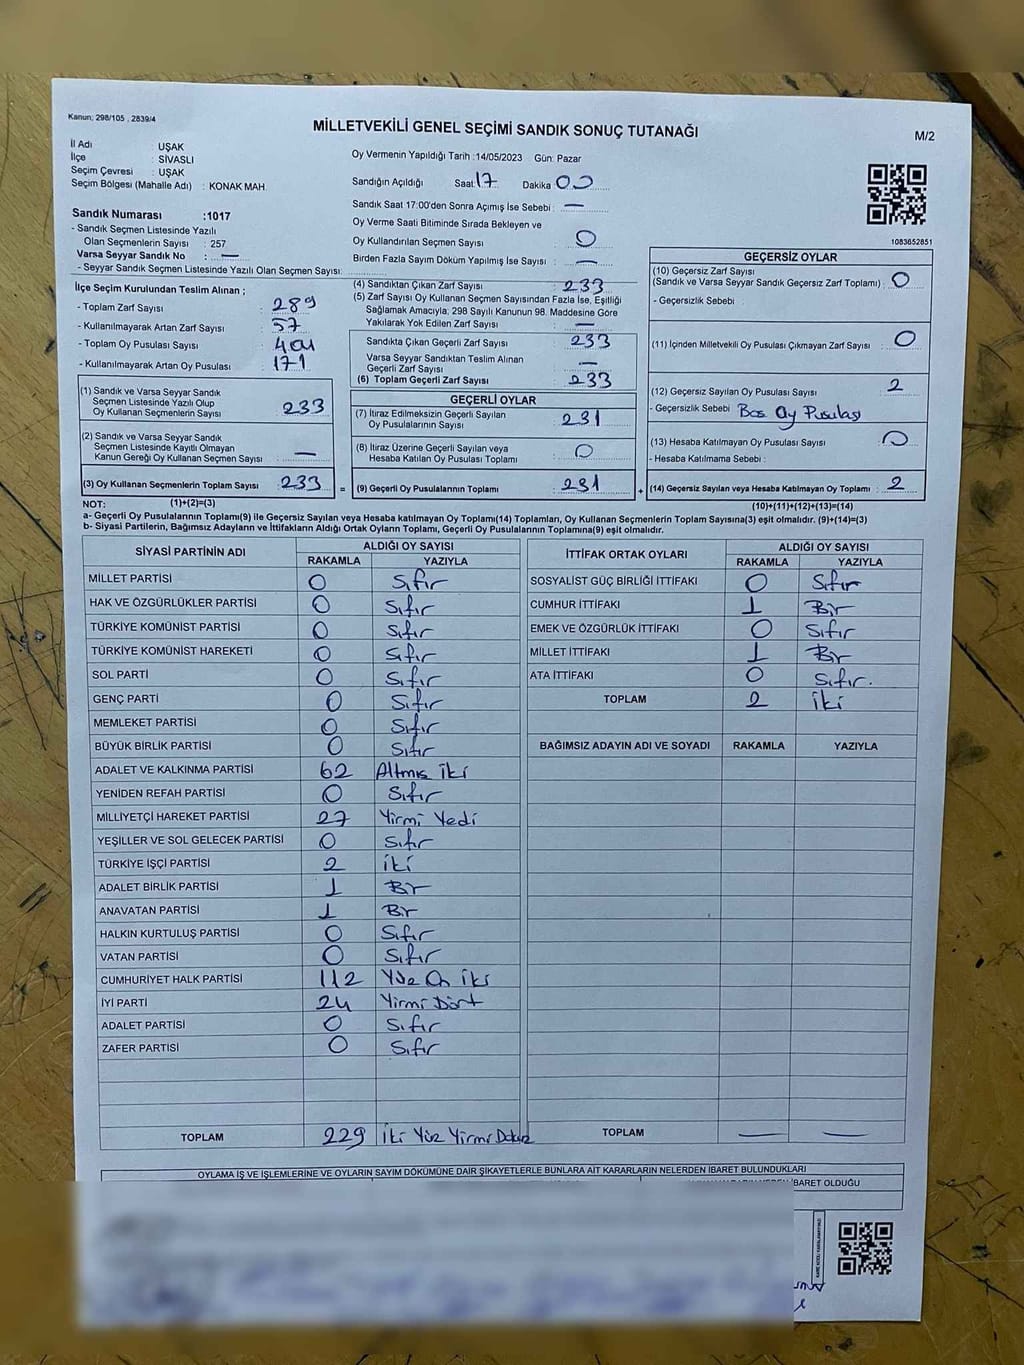 Kanun; 298/105 , 2839/4
MİLLETVEKİLİ GENEL SEÇİMİ SANDIK SONUÇ TUTANAĞI
M/2
İl Adı UŞAK
İlçe : SİVASLI
Seçim Çevresi : UŞAK
Seçim Bölgesi (Mahalle Adı) : KONAK MAH.
Sandık Numarası :1017
- Sandık Seçmen Listesinde Yazılı
Olan Seçmenlerin Sayısı : 257
Varsa Seyyar Sandık No : —
- Seyyar Sandık Seçmen Listesinde Yazılı Olan Seçmen Sayısı:
Oy Vermenin Yapıldığı Tarih :14/05/2023 Gün: Pazar
Sandığın Açıldığı Saat: 17 Dakika 00
Sandık Saat 17:00'den Sonra Açımış İse Sebebi : —
Oy Verme Saati Bitiminde Sırada Bekleyen ve
Oy Kullandırılan Seçmen Sayısı : 0
Birden Fazla Sayım Döküm Yapılmış İse Sayısı : —
1083652851
İlçe Seçim Kurulundan Teslim Alınan ;
- Toplam Zarf Sayısı : 289
- Kullanılmayarak Artan Zarf Sayısı : 57
- Toplam Oy Pusulası Sayısı : 404
- Kullanılmayarak Artan Oy Pusulası : 171
(1) Sandık ve Varsa Seyyar Sandık
Seçmen Listesinde Yazılı Olup
Oy Kullanan Seçmenlerin Sayısı : 233
(2) Sandık ve Varsa Seyyar Sandık
Seçmen Listesinde Kayıtlı Olmayan
Kanun Gereği Oy Kullanan Seçmen Sayısı : —
(3) Oy Kullanan Seçmenlerin Toplam Sayısı : 233
(4) Sandıktan Çıkan Zarf Sayısı : 233
(5) Zarf Sayısı Oy Kullanan Seçmen Sayısından Fazla İse, Eşitliği
Sağlamak Amacıyla; 298 Sayılı Kanunun 98. Maddesine Göre
Yakılarak Yok Edilen Zarf Sayısı : —
Sandıkta Çıkan Geçerli Zarf Sayısı : 233
Varsa Seyyar Sandıktan Teslim Alınan
Geçerli Zarf Sayısı : —
(6) Toplam Geçerli Zarf Sayısı : 233
GEÇERLİ OYLAR
(7) İtiraz Edilmeksizin Geçerli Sayılan
Oy Pusulalarının Sayısı : 231
(8) İtiraz Üzerine Geçerli Sayılan veya
Hesaba Katılan Oy Pusulası Toplamı : 0
= (9) Geçerli Oy Pusulalarının Toplamı : 231
GEÇERSİZ OYLAR
(10) Geçersiz Zarf Sayısı
(Sandık ve Varsa Seyyar Sandık Geçersiz Zarf Toplamı) : 0
- Geçersizlik Sebebi :
(11) İçinden Milletvekili Oy Pusulası Çıkmayan Zarf Sayısı : 0
(12) Geçersiz Sayılan Oy Pusulası Sayısı : 2
- Geçersizlik Sebebi : Bos Oy Pusulası
(13) Hesaba Katılmayan Oy Pusulası Sayısı : 0
- Hesaba Katılmama Sebebi :
+ (14) Geçersiz Sayılan veya Hesaba Katılmayan Oy Toplamı : 2
NOT: (1)+(2)=(3) (10)+(11)+(12)+(13)=(14)
a- Geçerli Oy Pusulalarının Toplamı(9) ile Geçersiz Sayılan veya Hesaba katılmayan Oy Toplamı(14) Toplamları, Oy Kullanan Seçmenlerin Toplam Sayısına(3) eşit olmalıdır. (9)+(14)=(3)
b- Siyasi Partilerin, Bağımsız Adayların ve İttifakların Aldığı Ortak Oyların Toplamı, Geçerli Oy Pusulalarının Toplamına(9) eşit olmalıdır.
SİYASİ PARTİNİN ADI ALDIĞI OY SAYISI
RAKAMLA YAZIYLA
MİLLET PARTİSİ 0 Sıfır
HAK VE ÖZGÜRLÜKLER PARTİSİ 0 Sıfır
TÜRKİYE KOMÜNİST PARTİSİ 0 Sıfır
TÜRKİYE KOMÜNİST HAREKETİ 0 Sıfır
SOL PARTİ 0 Sıfır
GENÇ PARTİ 0 Sıfır
MEMLEKET PARTİSİ 0 Sıfır
BÜYÜK BİRLİK PARTİSİ 0 Sıfır
ADALET VE KALKINMA PARTİSİ 62 Altmıs İki
YENİDEN REFAH PARTİSİ 0 Sıfır
MİLLİYETÇİ HAREKET PARTİSİ 27 Yirmi Yedi
YEŞİLLER VE SOL GELECEK PARTİSİ 0 Sıfır
TÜRKİYE İŞÇİ PARTİSİ 2 İki
ADALET BİRLİK PARTİSİ 1 Bir
ANAVATAN PARTİSİ 1 Bir
HALKIN KURTULUŞ PARTİSİ 0 Sıfır
VATAN PARTİSİ 0 Sıfır
CUMHURİYET HALK PARTİSİ 112 Yüz On İki
İYİ PARTİ 24 Yirmi Dört
ADALET PARTİSİ 0 Sıfır
ZAFER PARTİSİ 0 Sıfır
TOPLAM 229 İki Yüz Yirmi Dokuz
İTTİFAK ORTAK OYLARI ALDIĞI OY SAYISI
RAKAMLA YAZIYLA
SOSYALİST GÜÇ BİRLİĞİ İTTİFAKI 0 Sıfır
CUMHUR İTTİFAKI 1 Bir
EMEK VE ÖZGÜRLÜK İTTİFAKI 0 Sıfır
MİLLET İTTİFAKI 1 Bir
ATA İTTİFAKI 0 Sıfır.
TOPLAM 2 İki
BAĞIMSIZ ADAYIN ADI VE SOYADI RAKAMLA YAZIYLA
TOPLAM — —
OYLAMA İŞ VE İŞLEMLERİNE VE OYLARIN SAYIM DÖKÜMÜNE DAİR ŞİKAYETLERLE BUNLARA AİT KARARLARIN NELERDEN İBARET BULUNDUKLARI
İBARET OLDUĞU